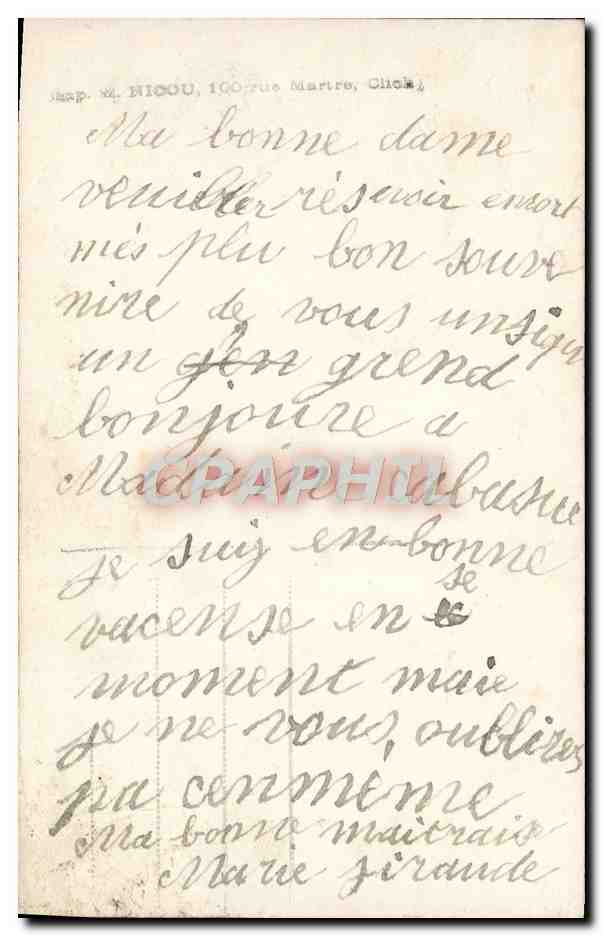 Imp. M. NICOU, 100 rue Martre, Clichy
Ma bonne dame
veuiller résevoir ensort
més plu bon souve
nire de vous unsiqu
un j'en grend
bonjoure a
Madame Labasue
je suig en bonne
vacense en se
moment maie
je ne vous, oublires
pa cenmême
Ma bonne maitraise
Marie Jiraude
CPARHIL